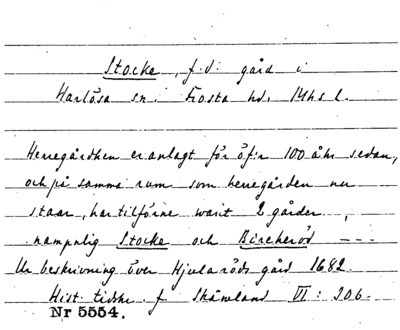 Stocke, f.d. gård i
Harlösa sn. Frosta hd. Mhs l.
Herregårdhen er anlagt för öf:r 100 åhr sedan,
och på samma rum som herregården nu
staar, har tilförne warit 2 gårder,
nampnlig Stocke och Bircheröd ---
Ur beskrivning över Hjularöds gård 1682.
Hist. tidskr. f Skåneland VI: 306.
Nr 5554.